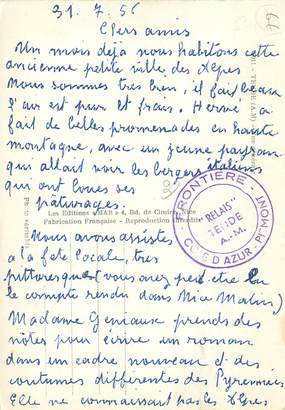 31.7.56
Chers amis
Un mois déjà nous habitons cette
ancienne petite ville des Alpes
Nous sommes très bien, il fait beau
L'air est pur et frais. Hervé a
fait de belles promenades en haute
montagne, avec un jeune paysan
qui allait voir les bergers italiens
qui ont loués ses
pâturages.
Les Editions "MAR" 4, Bd. de Cimiez, Nice
Fabrication Française - Reproduction interdite
FRONTIERE
"RELAIS"
TENDE
A.-M.
COTE D'AZUR - PIEMONT
Nous avons assistés
à la fête locale, très
pittoresque (vous avez peut être lu
le compte rendu dans Nice Matin)
Madame Geniaux prends des
notes pour écrire un roman
dans un cadre nouveau et des
coutumes différentes des Pyrennées
Elle ne connaissait pas les Alpes